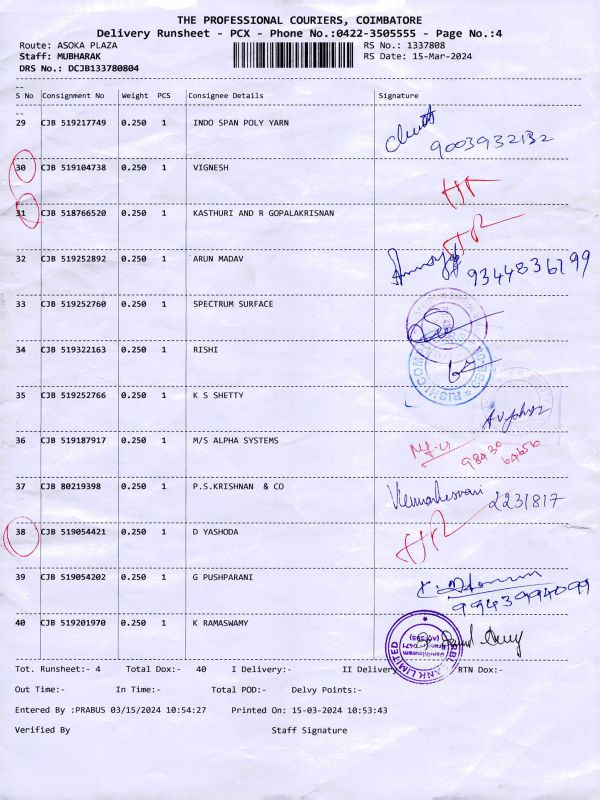 THE PROFESSIONAL COURIERS, COIMBATORE
Delivery Runsheet - PCX - Phone No.:0422-3505555 - Page No.:4
Route: ASOKA PLAZA RS No.: 1337808
Staff: MUBHARAK RS Date: 15-Mar-2024
DRS No.: DCJB133780804
S No Consignment No Weight PCS Consignee Details Signature
29 CJB 519217749 0.250 1 INDO SPAN POLY YARN
9003932132
30 CJB 519104738 0.250 1 VIGNESH
31 CJB 518766520 0.250 1 KASTHURI AND R GOPALAKRISNAN
32 CJB 519252892 0.250 1 ARUN MADAV
9344836799
33 CJB 519252760 0.250 1 SPECTRUM SURFACE
34 CJB 519322163 0.250 1 RISHI
35 CJB 519252766 0.250 1 K S SHETTY
36 CJB 519187917 0.250 1 M/S ALPHA SYSTEMS
37 CJB 80219398 0.250 1 P.S.KRISHNAN & CO
2231817
38 CJB 519054421 0.250 1 D YASHODA
39 CJB 519054202 0.250 1 G PUSHPARANI
9943994099
40 CJB 519201970 0.250 1 K RAMASWAMY
Tot. Runsheet:- 4 Total Dox:- 40 I Delivery:- II Delivery:- RTN Dox:-
Out Time:- In Time:- Total POD:- Delvy Points:-
Entered By :PRABUS 03/15/2024 10:54:27 Printed On: 15-03-2024 10:53:43
Verified By Staff Signature